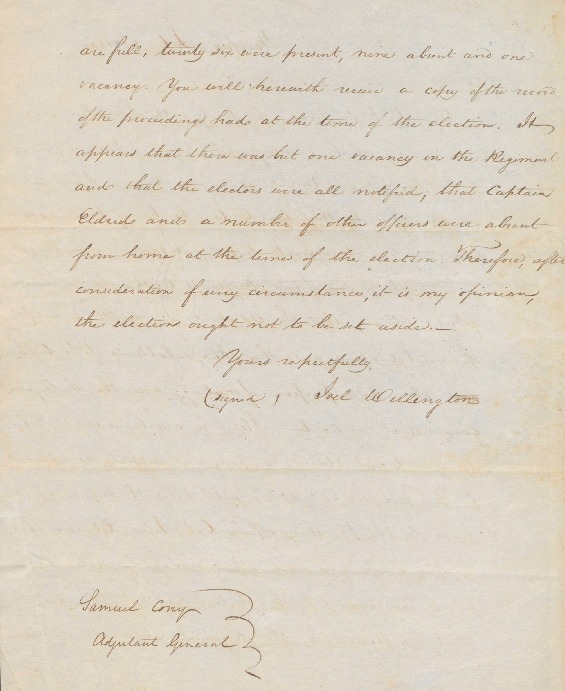 are full; twenty six were present, nine absent and one
vacancy. You will herewith receive a copy of the record
of the proceedings had at the time of the election. It
appears that there was but one vacancy in the Regiment
and that the electors were all notified, that Captain
Eldred and a number of other officers were absent
from home at the time of the election. Therefore, after
consideration of every circumstance, it is my opinion,
the election ought not to be set aside.—
Yours respectfully,
(signed, Joel Wellington
Samuel Cony
Adjutant General